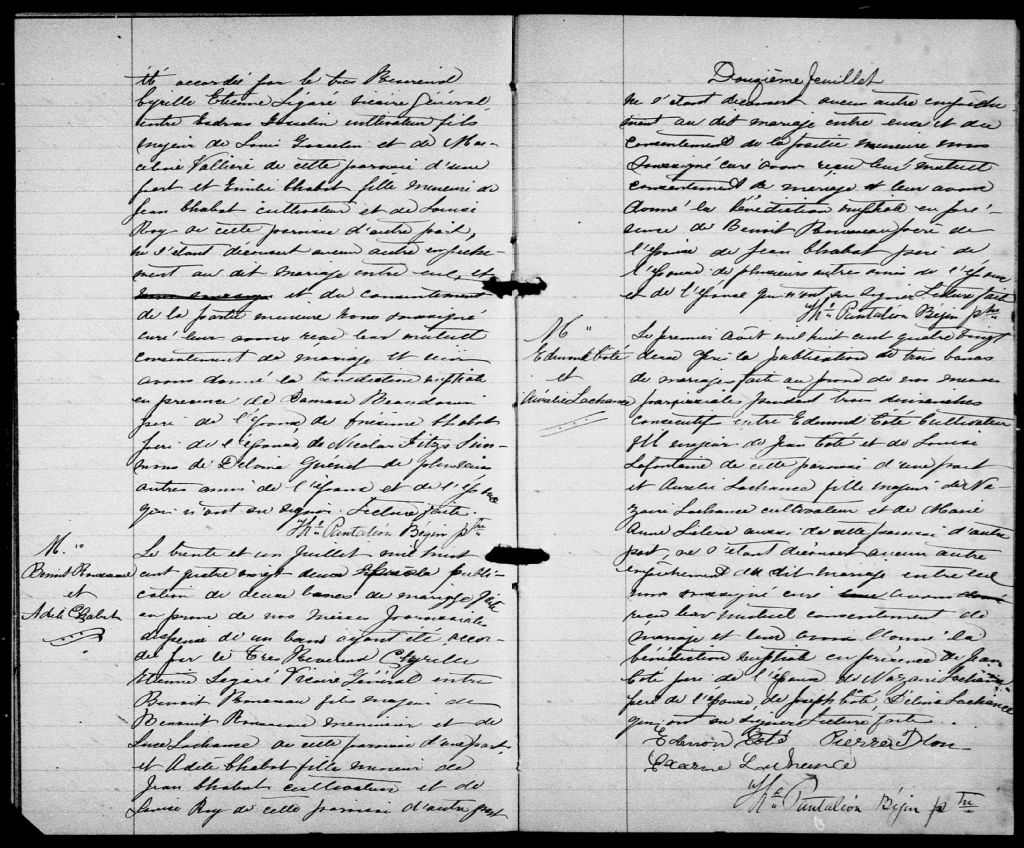 été accordée par le très Révérend
Cyrille Etienne Légaré vicaire Général
entre Esdras Gosselin cultivateur fils
majeur de Louis Gosselin et de Mar-
celine Vallière de cette paroisse d'une
part et Emilie Chabot fille mineure de
Jean Chabot cultivateur et de Louise
Roy de cette paroisse d'autre part,
ne s'étant découvert aucun autre empêche-
ment au dit mariage entre eux, et
et du consentement
de la partie mineure nous soussigné
curé leur avons reçu leur mutuel
consentement de mariage et
avons donné la bénédiction nuptiale
en presence de Damase Beaudouin
père de l'Epoux de Chabot
père de l'Epouse, de Nicolas Fitzs Sim-
mons de Delvina Guénet de plusieurs
autres amis de l'Epoux et de l'Epouse
qui n'ont su signer. Lecture faite.
Pantaléon Bégin ptre
M.
Benoit Rousseau
et
Adèle Chabot
Le trente et un Juillet mil huit
cent quatre vingt deux après la publi-
cation de deux bans de mariage fait
au prone de nos messes Paroissiale
dispense de un bans ayant été accor-
dée par le Très Révérend Cyrille
Etienne Legaré Vicaire Général entre
Benoit Rousseau fils majeur de
Benonit Rousseau menuisier et de
Luce Lachance de cette paroisse d'une part
et Adèle Chabot fille mineur de
Jean Chabot cultivateur et de
Louise Roy de cette paroisse d'autre part
Douzième feuillet
ne s'étant découvert aucun autre empêche-
ment au dit mariage entre eux et du
consentement de la partie mineure nous
soussigné curé avons reçu leur mutuel
consentement de mariage et leur avons
donné la bénédiction nuptiale en pré-
sence de Benoit Rousseau père de
l'Epoux de Jean Chabot père de
l'Epouse de plusieurs autres amis de l'Epoux
et de l'Epouse qui n'ont su signer Lecture faite
Pantaléon Bégin ptre
M
Edmond Coté
et
Aurélie Lachance
Le premier Août mil huit cent quatre vingt
deux après la publication de trois bans
de mariage faite au prone de nos messes
paroissiale pendant trois dimanches
consecutif entre Edmond Coté Cultivateur
fils majeur de Jean Coté et de Louise
Lafontaine de cette paroisse d'une part
et Aurelie Lachance fille majeure de Na-
zaire Lachance cultivateur et de Marie
Anne aussi de cette paroisse d'autre
part, ne s'étant découvert aucun autre
empêchement au dit mariage entre eux
nous soussigné curé avons
reçu leur mutuel consentement de
mariage et leur avons donné la
bénédiction nuptiale en présence de Jean
Coté père de l'Epoux de Nazaire Lachance
père de l'Epouse, de Joseph Coté, Délina Lachance
qui ont su signer Lecture faite.
Edmon Coté Pierre Dion
Pantaléon Bégin ptre